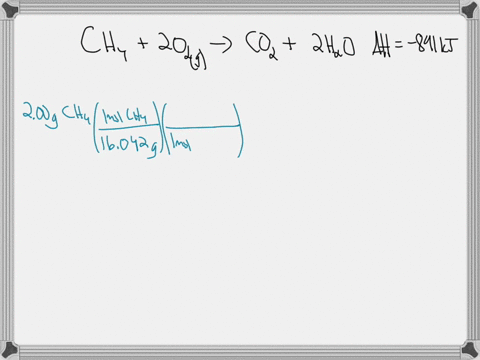 CH₄ + 2O₂(g) → CO₂ + 2H₂O ΔH = -891 kJ
2.00g CH₄ (1mol CH₄ / 16.042g) ( / 1mol )